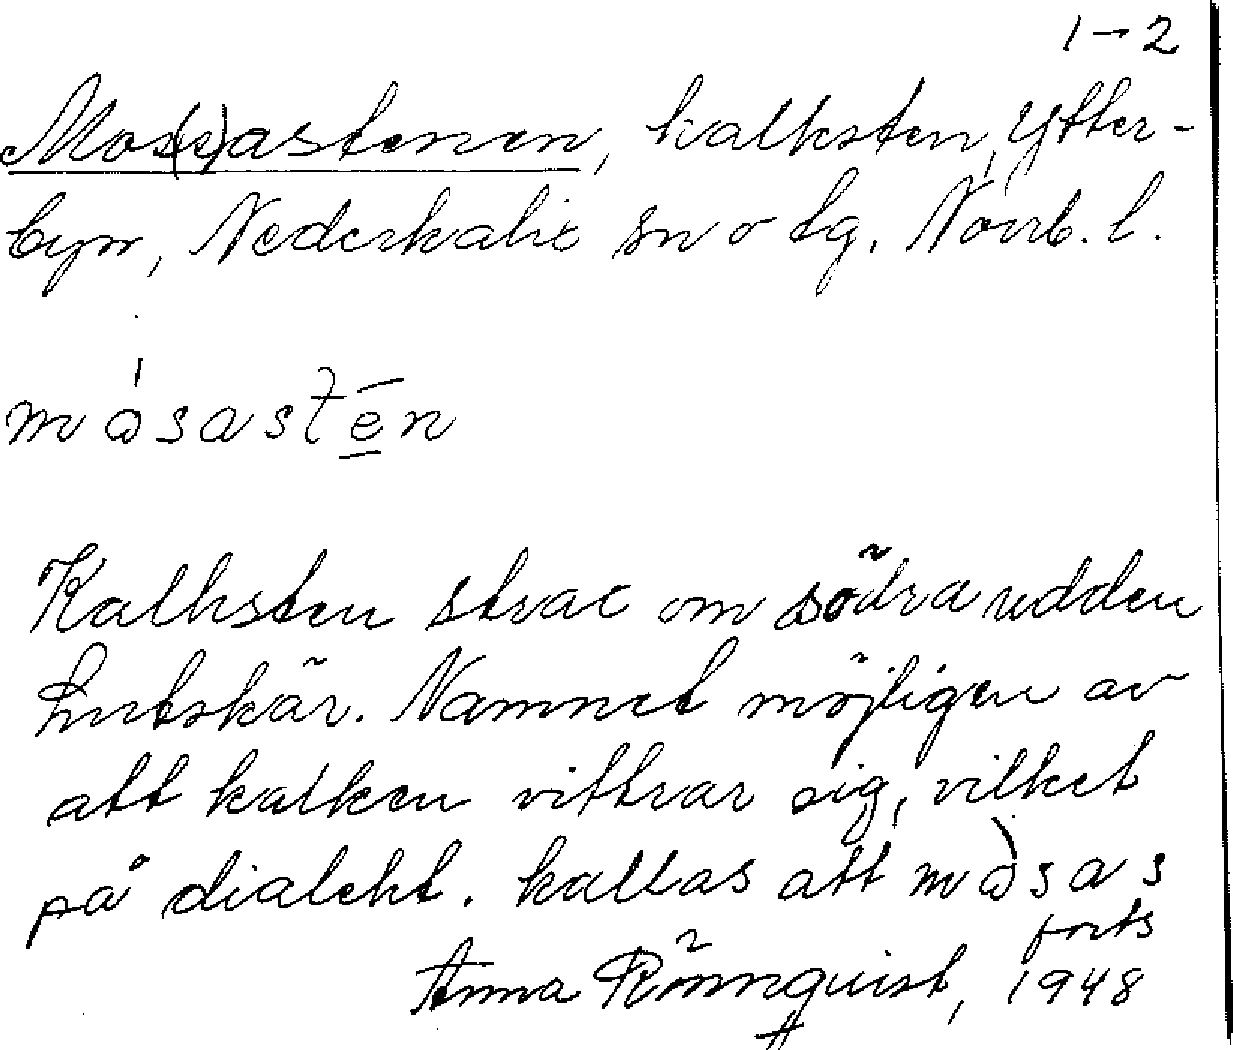 1-2
Mos(s)astenen, kalksten, Ytter-
byn, Nederkalix sn o tg. Norrb. l.
måsastēn
Kalksten strax om södra udden
Lutskär. Namnet möjligen av
att kalken vittrar sig, vilket
på dialekt. kallas att måsas
forts
Anna Rönnquist, 1948